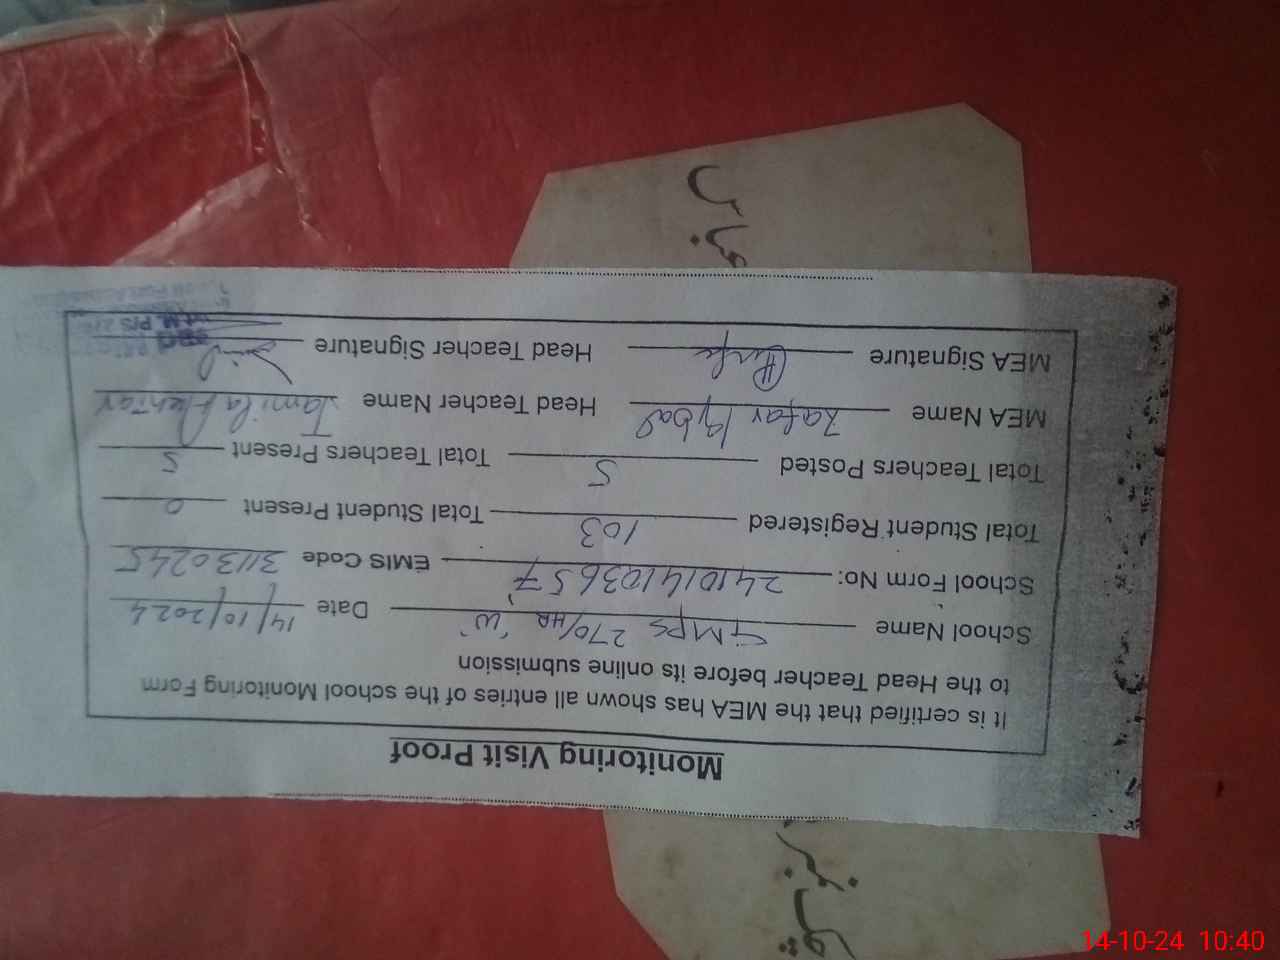 Monitoring Visit Proof
It is certified that the MEA has shown all entries of the school Monitoring Form
to the Head Teacher before its online submission
School Name GMPS 270/HR "W" Date 14/10/2024
School Form No: 24101410 3657 EMIS Code 31130245
Total Student Registered 103 Total Student Present 0
Total Teachers Posted 5 Total Teachers Present 5
MEA Name Zafar Iqbal Head Teacher Name Jamila Akhtar
MEA Signature Head Teacher Signature
14-10-24 10:40